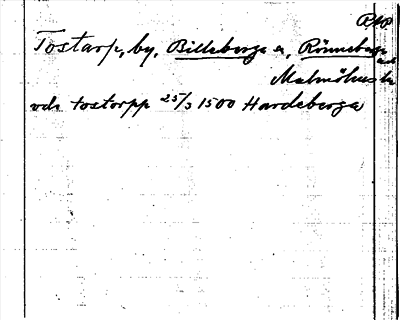 Tostarp, by, Billeberga s, Rönneberga
Malmöhus
vdr tostorpp 25/3 1500 Hardeberga